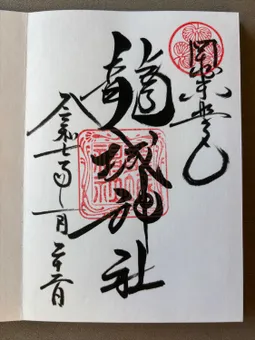 岡崎東照宮
龍城神社
令和七年一月二十二日